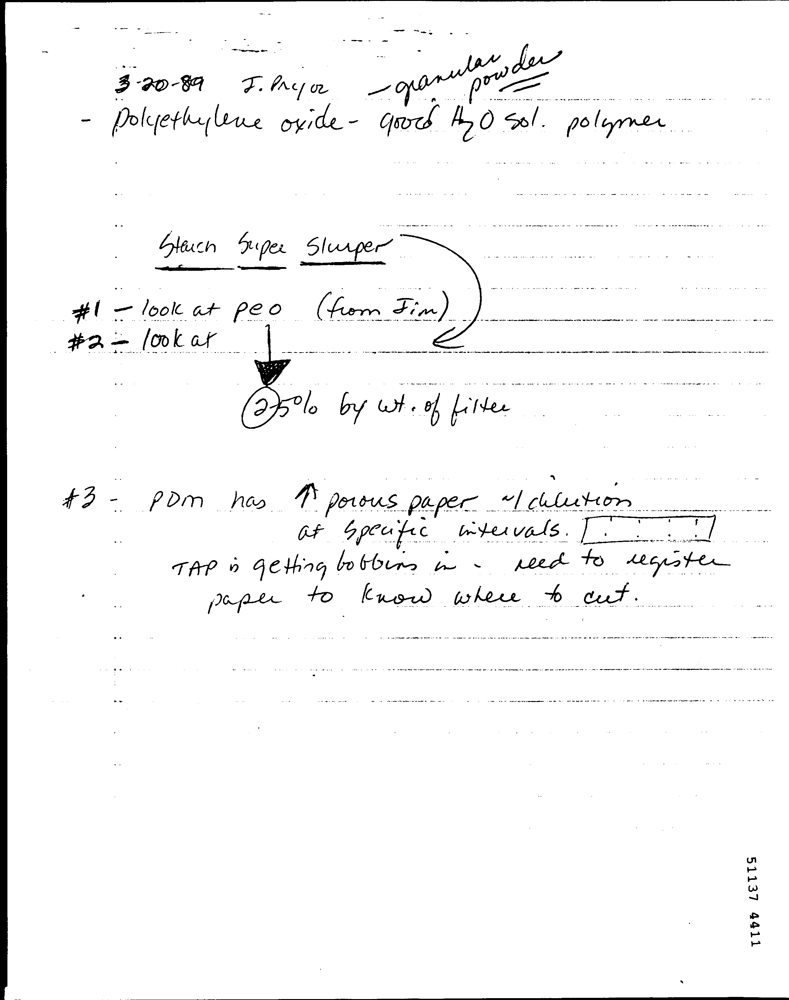 3-20-89 J. Pryor - granular powder
- Polyethylene oxide - good H2O sol. polymer
Starch Super Slurper
#1 - look at peo (from Jim)
#2 - look at
25% by wt. of filter
#3 - PDM has ↑ porous paper w/ dilution
at specific intervals.
TAP is getting bobbins in - need to register
paper to know where to cut.
51137 4411